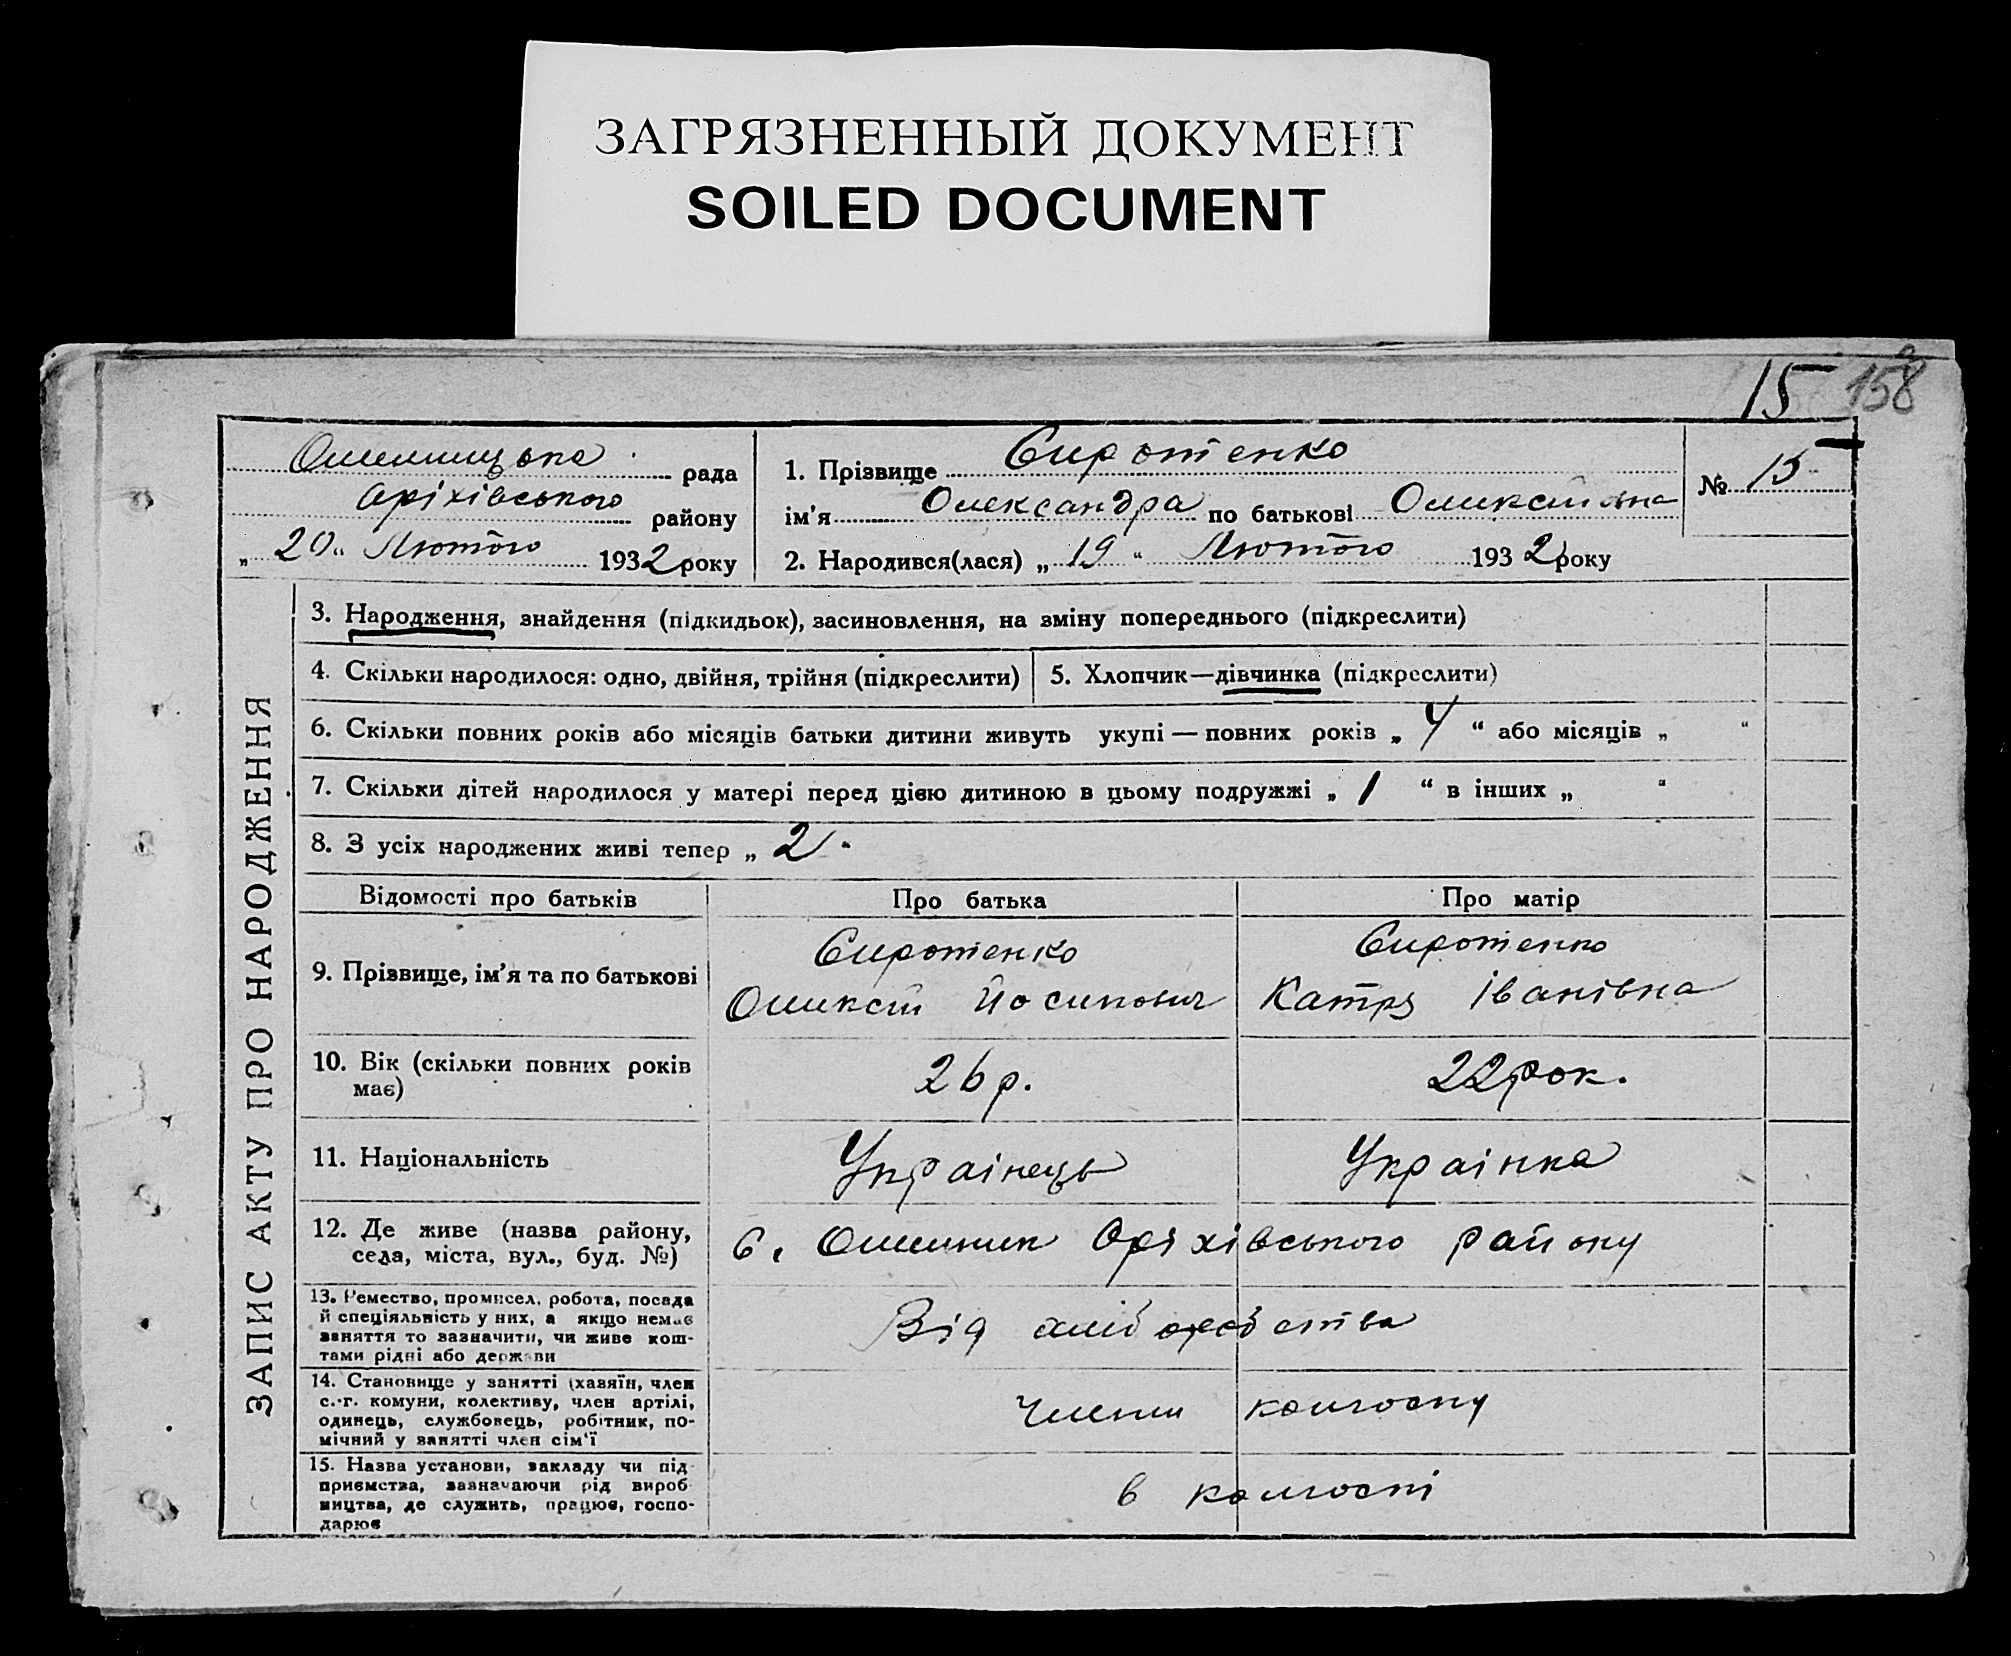 ЗАГРЯЗНЕННЫЙ ДОКУМЕНТ
SOILED DOCUMENT
15 158
Омельницька рада
Оріхівського району
„ 20 “ Лютого 1932 року
1. Прізвище Сиротенко
ім'я Олександра по батькові
№ 15
2. Народився(лася) „ 19 “ Лютого 1932 року
ЗАПИС АКТУ ПРО НАРОДЖЕННЯ
3. Народження, знайдення (підкидьок), засиновлення, на зміну попереднього (підкреслити)
4. Скільки народилося: одно, двійня, трійня (підкреслити)
5. Хлопчик—дівчинка (підкреслити)
6. Скільки повних років або місяців батьки дитини живуть укупі — повних років „ 4 “ або місяців „ “
7. Скільки дітей народилося у матері перед цією дитиною в цьому подружжі „ 1 “ в інших „ “
8. З усіх народжених живі тепер „ 2 “
Відомості про батьків Про батька Про матір
9. Прізвище, ім'я та по батькові
Сиротенко
Олексій Йосипович
Сиротенко
Катря Іванівна
10. Вік (скільки повних років
має)
26 р.
22 рок.
11. Національність
Украінець
Украінка
12. Де живе (назва району,
села, міста, вул., буд. №)
с. Омельник Оріхівського району
13. Ремество, промисел, робота, посада
й спеціяльність у них, а якщо немає
заняття то зазначити, чи живе кош-
тами рідні або держави
Від хліборобства
14. Становище у занятті (хазяїн, член
с.-г. комуни, колективу, член артілі,
одинець, службовець, робітник, по-
мічний у занятті член сім'ї
Члени колгоспу
15. Назва установи, закладу чи під
приємства, зазначаючи рід вироб
ництва, де служить, працює, госпо-
дарює
в колгоспі